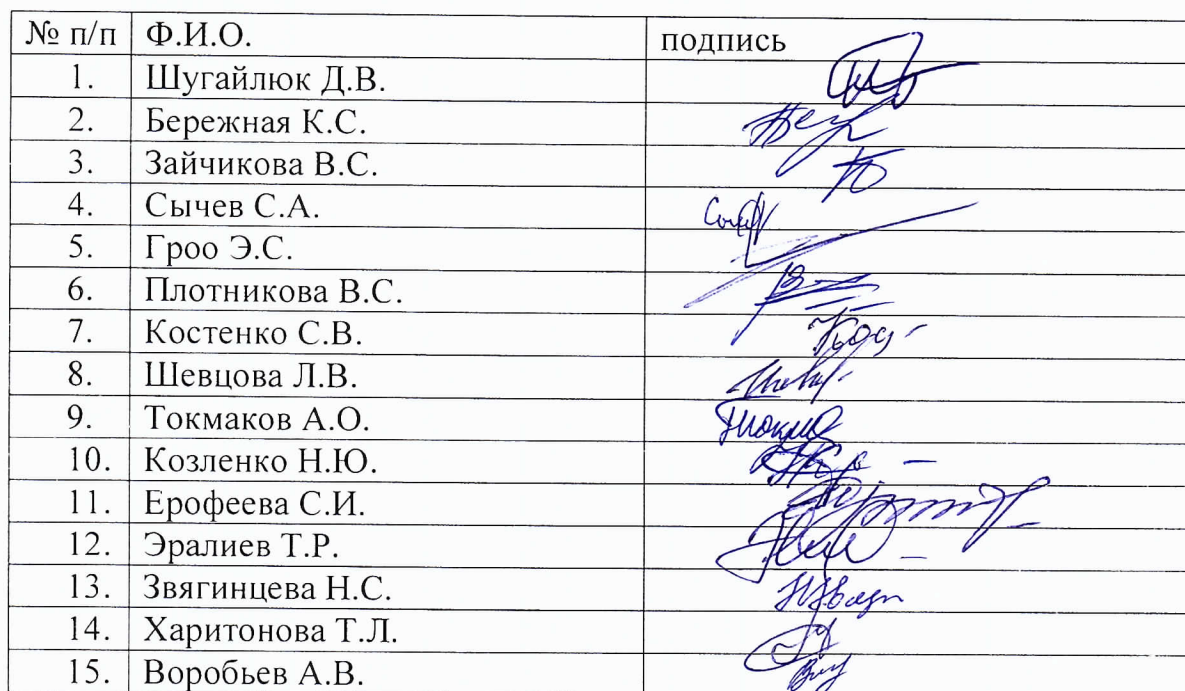 № п/п Ф.И.О. подпись
1. Шугайлюк Д.В.
2. Бережная К.С.
3. Зайчикова В.С.
4. Сычев С.А.
5. Гроо Э.С.
6. Плотникова В.С.
7. Костенко С.В.
8. Шевцова Л.В.
9. Токмаков А.О.
10. Козленко Н.Ю.
11. Ерофеева С.И.
12. Эралиев Т.Р.
13. Звягинцева Н.С.
14. Харитонова Т.Л.
15. Воробьев А.В.